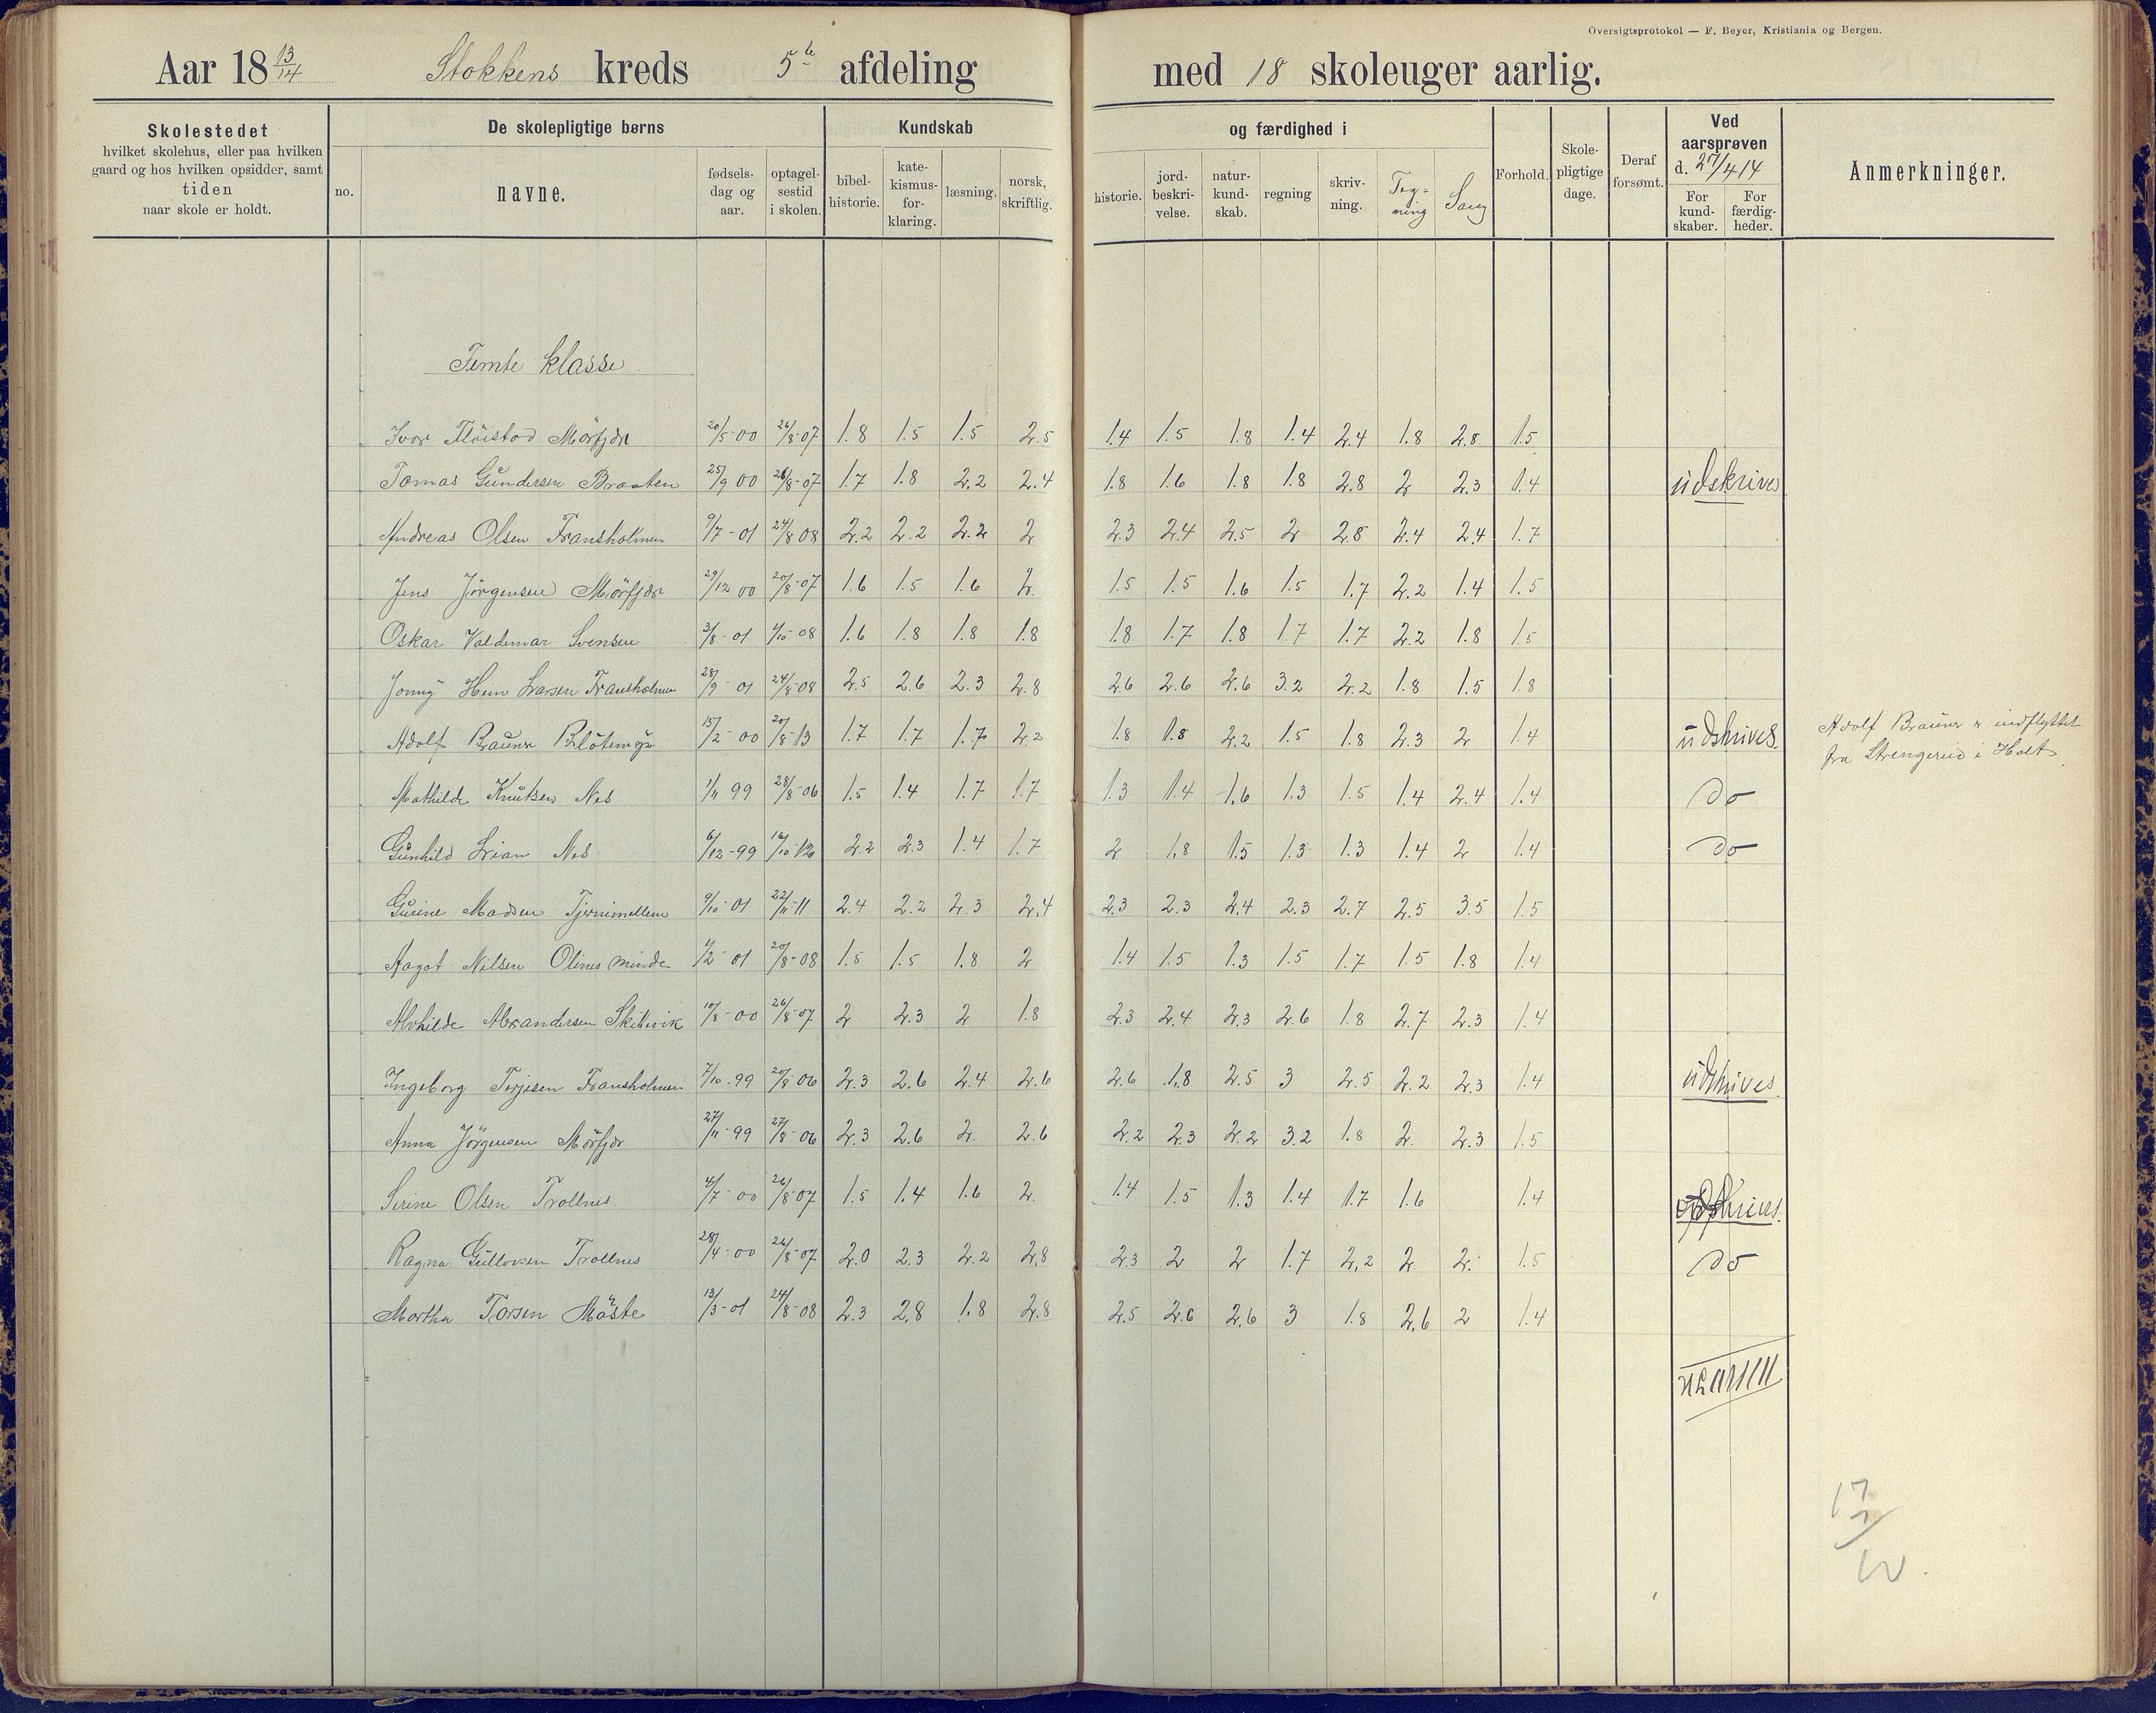 Oversigtsprotokol — F. Beyer, Kristiania og Bergen.
Aar 18 13/14 Stokkens kreds 5te afdeling med 18 skoleuger aarlig.
Skolestedet hvilket skolehus, eller paa hvilken gaard og hos hvilken opsidder, samt tiden naar skole er holdt.
De skolepligtige børns
no. navne. fødsels-dag og aar. optagel-sestid i skolen.
Kundskab og færdighed i
bibel-historie. kate-kismus-for-klaring. læsning. norsk, skriftlig. historie. jord-beskri-velse. natur-kund-skab. regning skriv-ning. Teg-ning Sang
Forhold. Skole-pligtige dage. Deraf forsømt.
Ved aarsprøven d. 27/4 14 For kund-skaber. For færdig-heder.
Anmerkninger.
Femte klasse
Ivar Fløistad Mörfjær 20/5-00 26/8-07 1.8 1.5 1.5 2.5 1.4 1.5 1.8 1.4 2.4 1.8 2.8 1.5
Tomas Gundersen Braaten 25/9 00 26/8-07 1.7 1.8 2.2 2.4 1.8 1.6 1.8 1.8 2.8 2 2.3 1.4 udskrives
Andreas Olsen Fransholmen 9/7-01 24/8 08 2.2 2.2 2.2 2 2.3 2.4 2.5 2 2.8 2.4 2.4 1.7
Jens Jörgensen Mörfjær 29/12 00 20/8-07 1.6 1.5 1.6 2. 1.5 1.5 1.6 1.5 1.7 2.2 1.4 1.5
Oskar Valdemar Svensen 3/8-01 1/10-08 1.6 1.8 1.8 1.8 1.8 1.7 1.8 1.7 1.7 2.2 1.8 1.5
Jonny Hein Larsen Fransholmen 28/9-01 24/8-08 2.5 2.6 2.3 2.8 2.6 2.6 2.6 3.2 2.2 1.8 1.5 1.8
Adolf Brauner 15/2-00 20/8-13 1.7 1.7 1.7 2.2 1.8 1.8 2.2 1.5 1.8 2.3 2 1.4 udskrives. Adolf Brauner er indflyttet
fra Strengereid i Holt.
Mathilde Knutsen Nes 1/11 99 28/8-06 1.5 1.4 1.7 1.7 1.3 1.4 1.6 1.3 1.5 1.4 2.4 1.4 do
Gunhild Lian Nes 6/12-99 16/10-12 2.2 2.3 1.4 1.7 2 1.8 1.5 1.3 1.3 1.4 2 1.4 do
Gurine Madsen Tjernmellem 9/10-01 22/11-11 2.4 2.2 2.3 2.4 2.3 2.3 2.4 2.3 2.7 2.5 3.5 1.5
Aagot Nilsen Olines minde 1/2-01 20/8-08 1.5 1.5 1.8 2 1.4 1.5 1.3 1.5 1.7 1.5 1.8 1.4
Alvhilde Alexandersen Skibvik 10/8-00 26/8-07 2 2.3 2 1.8 2.3 2.4 2.3 2.6 1.8 2.7 2.3 1.4
Ingeborg Terjesen Fransholmen 7/10-99 20/8-06 2.3 2.6 2.4 2.6 2.6 1.8 2.5 3 2.5 2.2 2.3 1.4 udskrives.
Anna Jörgensen Mörfjær 27/11-99 27/8-06 2.3 2.6 2. 2.6 2.2 2.3 2.2 3.2 1.8 2. 2.3 1.5
Serine Olsen Trollnes 4/7-00 26/8-07 1.5 1.4 1.6 2. 1.4 1.5 1.3 1.4 1.7 1.6 1.4
Ragna Gullovsen Trollnes 28/4-00 26/8-07 2.0 2.3 2.2 2.8 2.3 2 2 1.7 2.2 2. 2. 1.5 do
Martha Torsen Möste 13/3-01 24/8-08 2.3 2.8 1.8 2.8 2.5 2.6 2.6 3 1.8 2.6 2 1.4
17